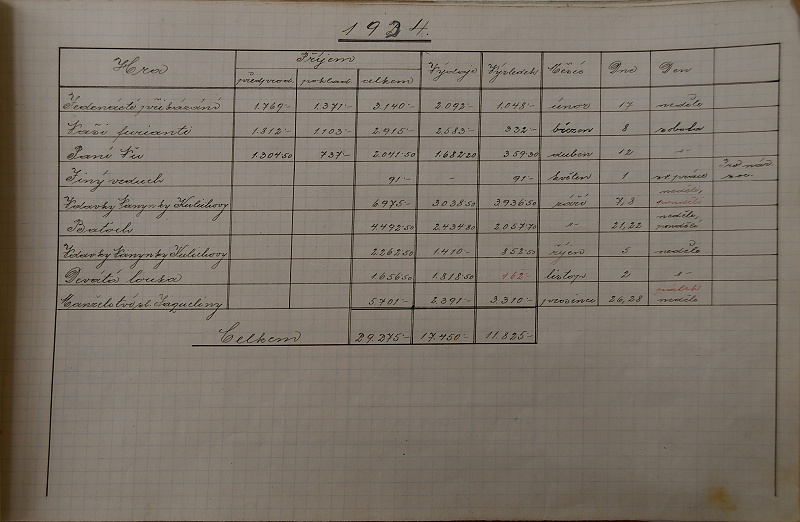 1934.
Hra Příjem Výdaje Výsledek Měsíc Dne Den
předprod. pokland. celkem
Jedenácté přikázání 1.769·- 1.371·- 3.140·- 2.092·- 1.048·- únor 17 neděle
Naši furianti 1.812·- 1.103·- 2.915·- 2.583·- 332·- březen 8 sobota
Paní 1.304·50 737·- 2.041·50 1.682·20 359·30 duben 12 -"-
Jiný vzduch 91·- - 91·- květen 1 sv. práce
Vdavky Nanynky Kulichovy 6975·- 3038·50 3936·50 září 7,8 neděle, pondělí
Batoch 4492·50 2434·80 2057·70 -"- 21,22 neděle, pondělí
Vdavky Nanynky Kulichovy 2262·50 1.410·- 852·50 říjen 5 neděle
Devátá louka 1.656·50 1.818·50 162·- listop. 2 -"-
Manželství sl. Jaqueliny 5.701·- 2.391·- 3.310·- prosinec 26,28 neděle
Celkem 29.275·- 17.450·- 11.825·-